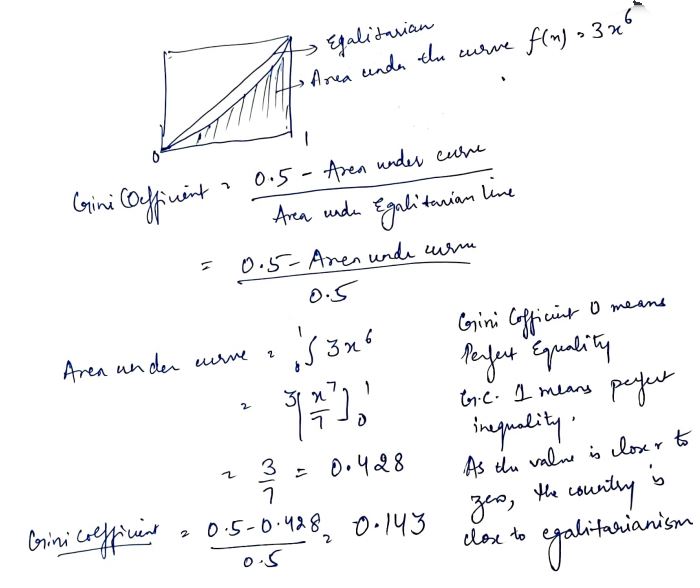 Egalitarian
Area under the curve f(x) = 3x⁶
0
1
Gini Coefficient = 0.5 - Area under curve
Area under Egalitarian Line
= 0.5 - Area under curve
0.5
Area under curve = ₀¹∫ 3x⁶
= 3[x⁷/7]₀¹
= 3/7 = 0.428
Gini Coefficient = 0.5-0.428 = 0.143
0.5
Gini Cofficient 0 means
Perfect Equality
G.C. 1 means perfect
inequality.
As the value is closer to
zero, the country is
close to egalitarianism